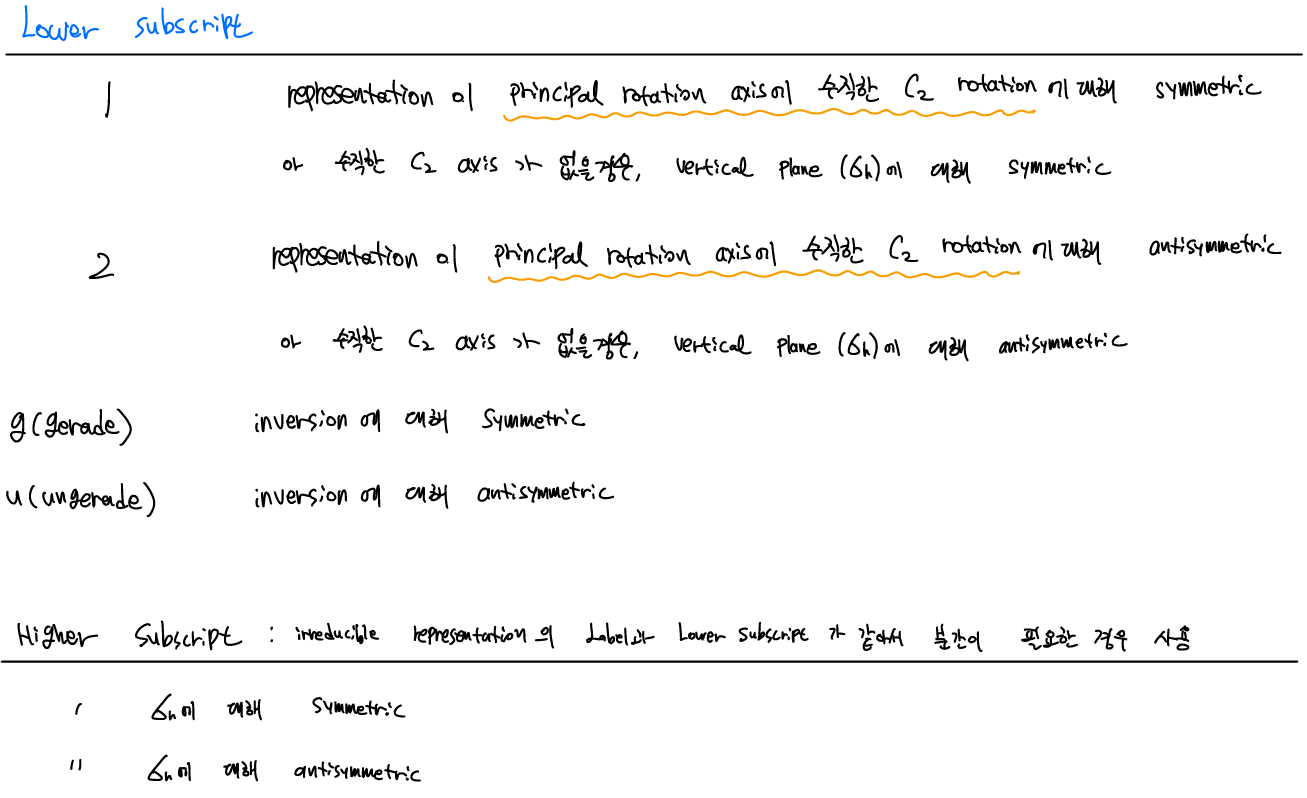 Lower subscript
1 representation 이 principal rotation axis에 수직한 C₂ rotation 에 대해 symmetric
or 수직한 C₂ axis 가 없을경우, vertical plane (σh)에 대해 symmetric
2 representation 이 principal rotation axis에 수직한 C₂ rotation 에 대해 antisymmetric
or 수직한 C₂ axis 가 없을경우, vertical plane (σh)에 대해 antisymmetric
g(gerade) inversion 에 대해 symmetric
u(ungerade) inversion 에 대해 antisymmetric
Higher subscript : irreducible representation 의 Label과 Lower subscript 가 같아서 분간이 필요한 경우 사용
′ σh에 대해 symmetric
″ σh에 대해 antisymmetric